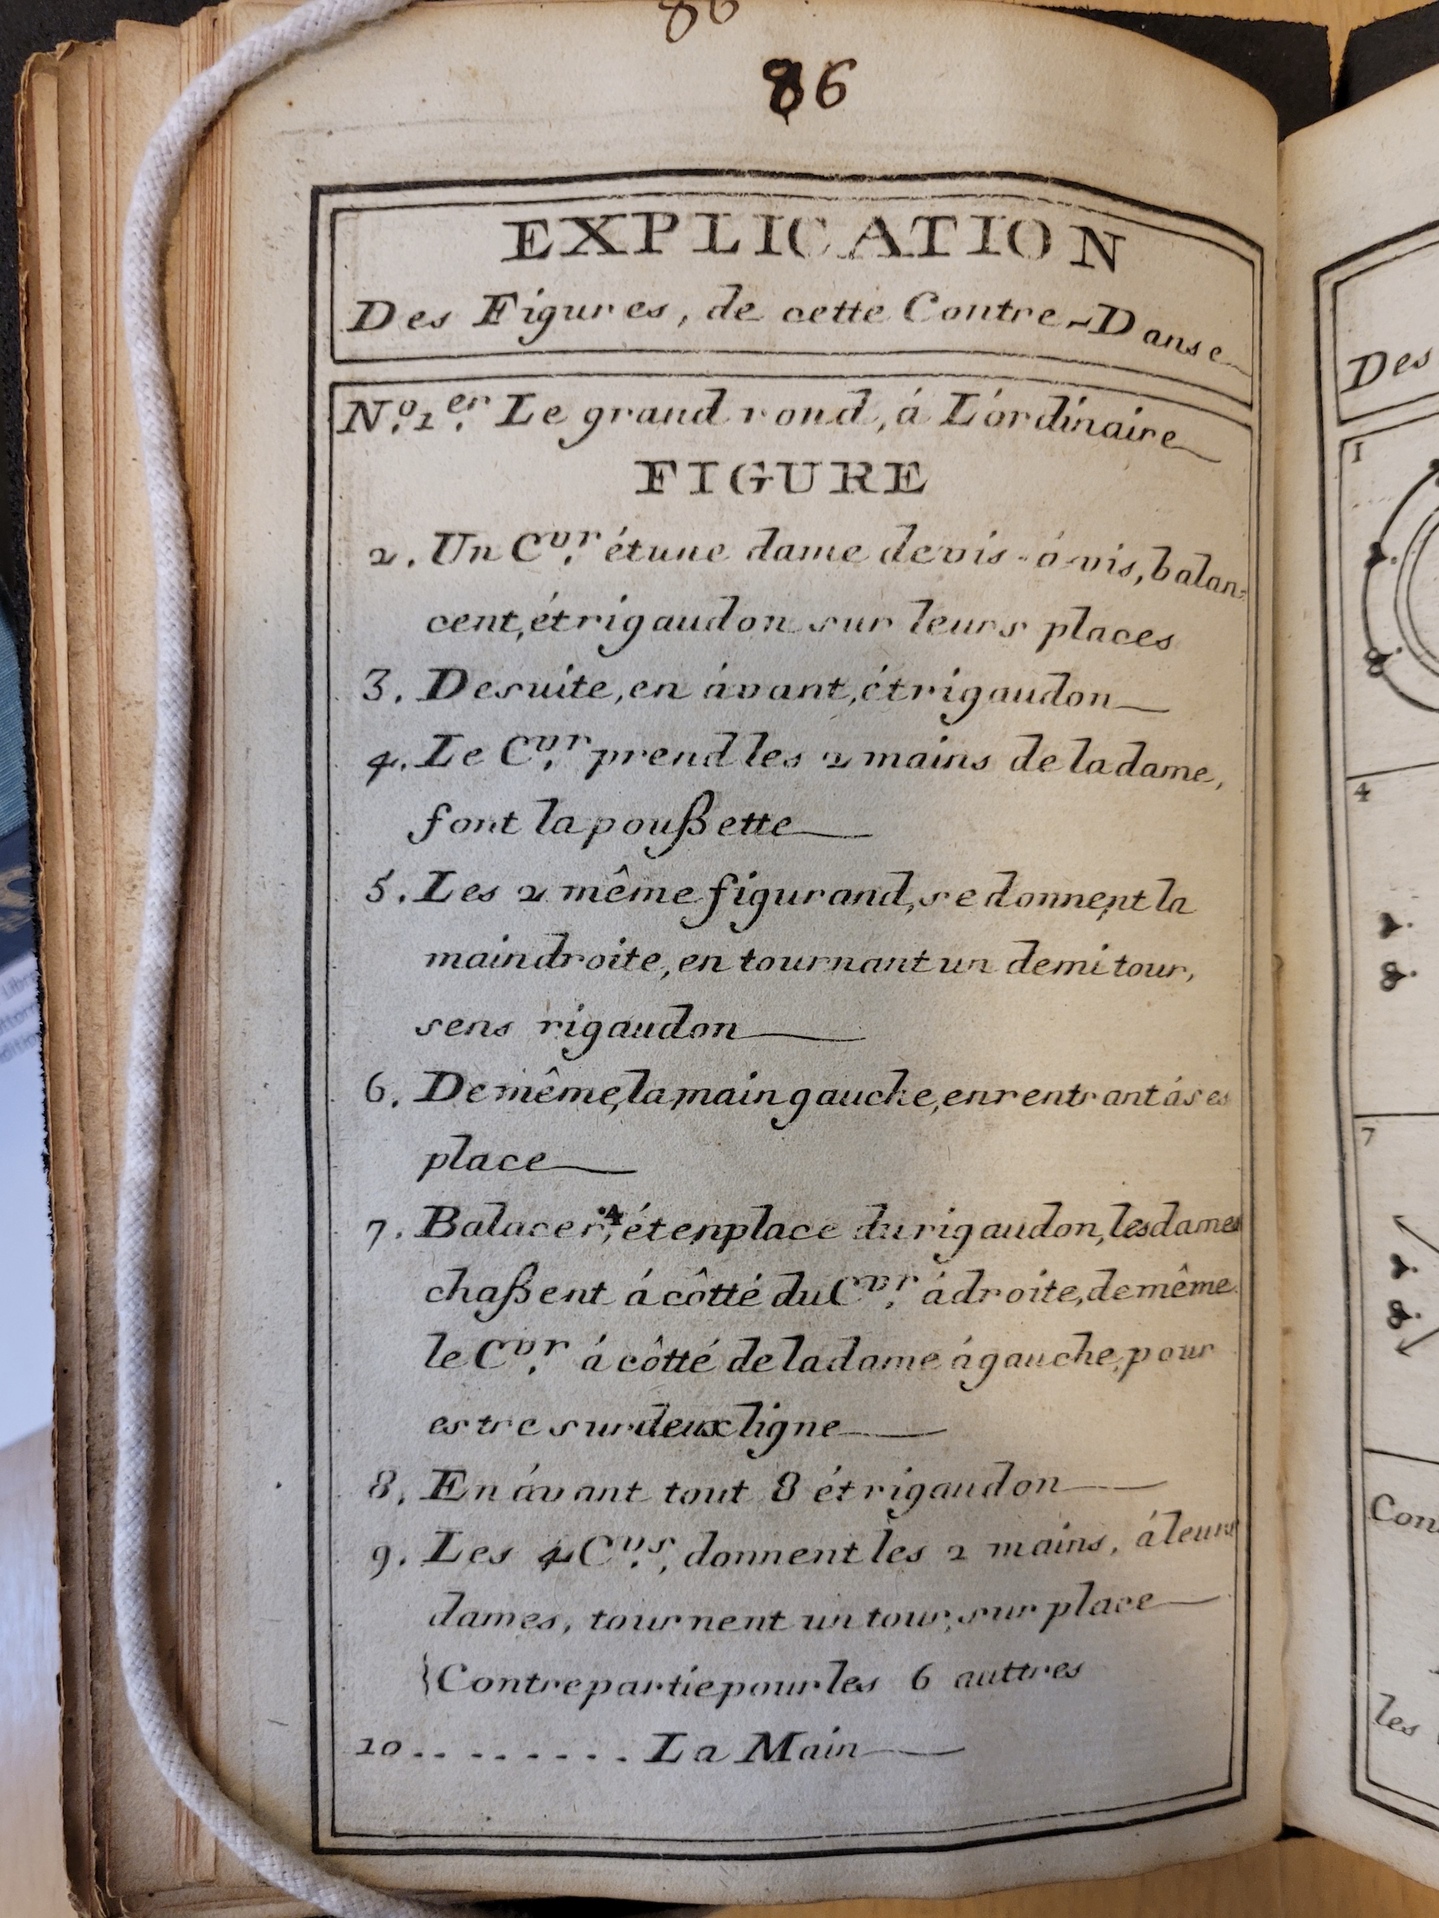 86
86
EXPLICATION
Des Figures, de cette Contre-Danse
N.º 1.er Le grand rond, á L'órdinaire
FIGURE
2. Un C.vr ét une dame de vis-á-vis, balan=
cent, ét rigaudon sur leurs places
3. De suite, en ávant, ét rigaudon
4. Le C.vr prend les 2 mains de la dame,
font la poußette
5. Les 2 même figurand, se donnent la
main droite, en tournant un demi tour,
sens rigaudon
6. De même, la main gauche, en rentrant á ses
place
7. Balacer, 4 ét en place du rigaudon, les dames
chaßent á côtté du C.vr á droite, de même
le C.vr á côtté de la dame á gauche, pour
estre sur deux ligne
8. En ávant tout 8 ét rigaudon
9. Les 4 C.vs, donnent les 2 mains, á leurs
dames, tournent un tour, sur place
{Contre partie pour les 6 auttres
10......... La Main
Des
1
4
7
Con
les